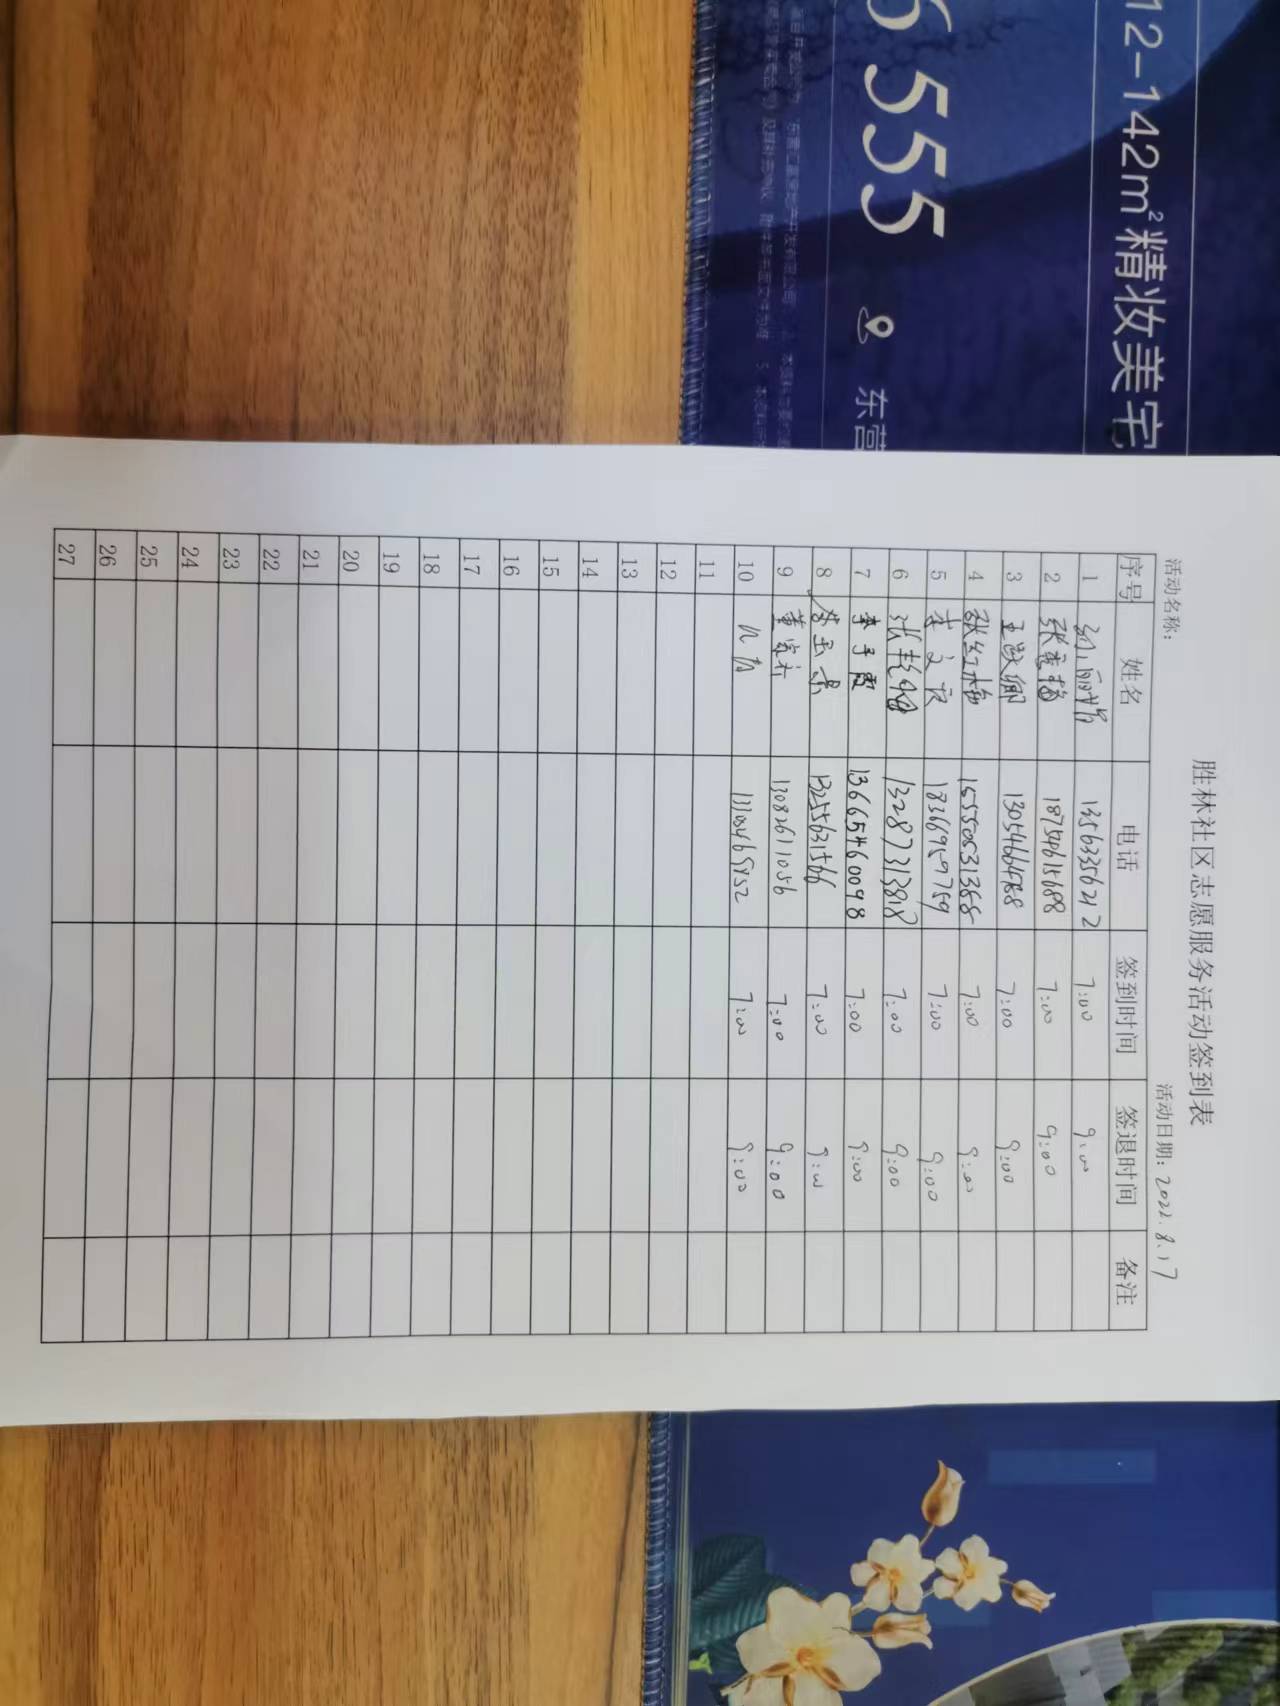 12-142m²精妆美宅
6 555
东营
胜林社区志愿服务活动签到表
活动名称： 活动日期：2022.8.17
序号 姓名 电话 签到时间 签退时间 备注
1 13563356212 7:00 9:00
2 18754615688 7:00 9:00
3 7:00 9:00
4 张红梅 15550531368 7:00 9:00
5 李文 18366959759 7:00 9:00
6 张艳 13287313818 7:00 9:00
7 李子霞 13665460098 7:00 9:00
8 玉景 13255631566 7:00 9:00
9 董 13082611056 7:00 9:00
10 7:00 9:00
11
12
13
14
15
16
17
18
19
20
21
22
23
24
25
26
27